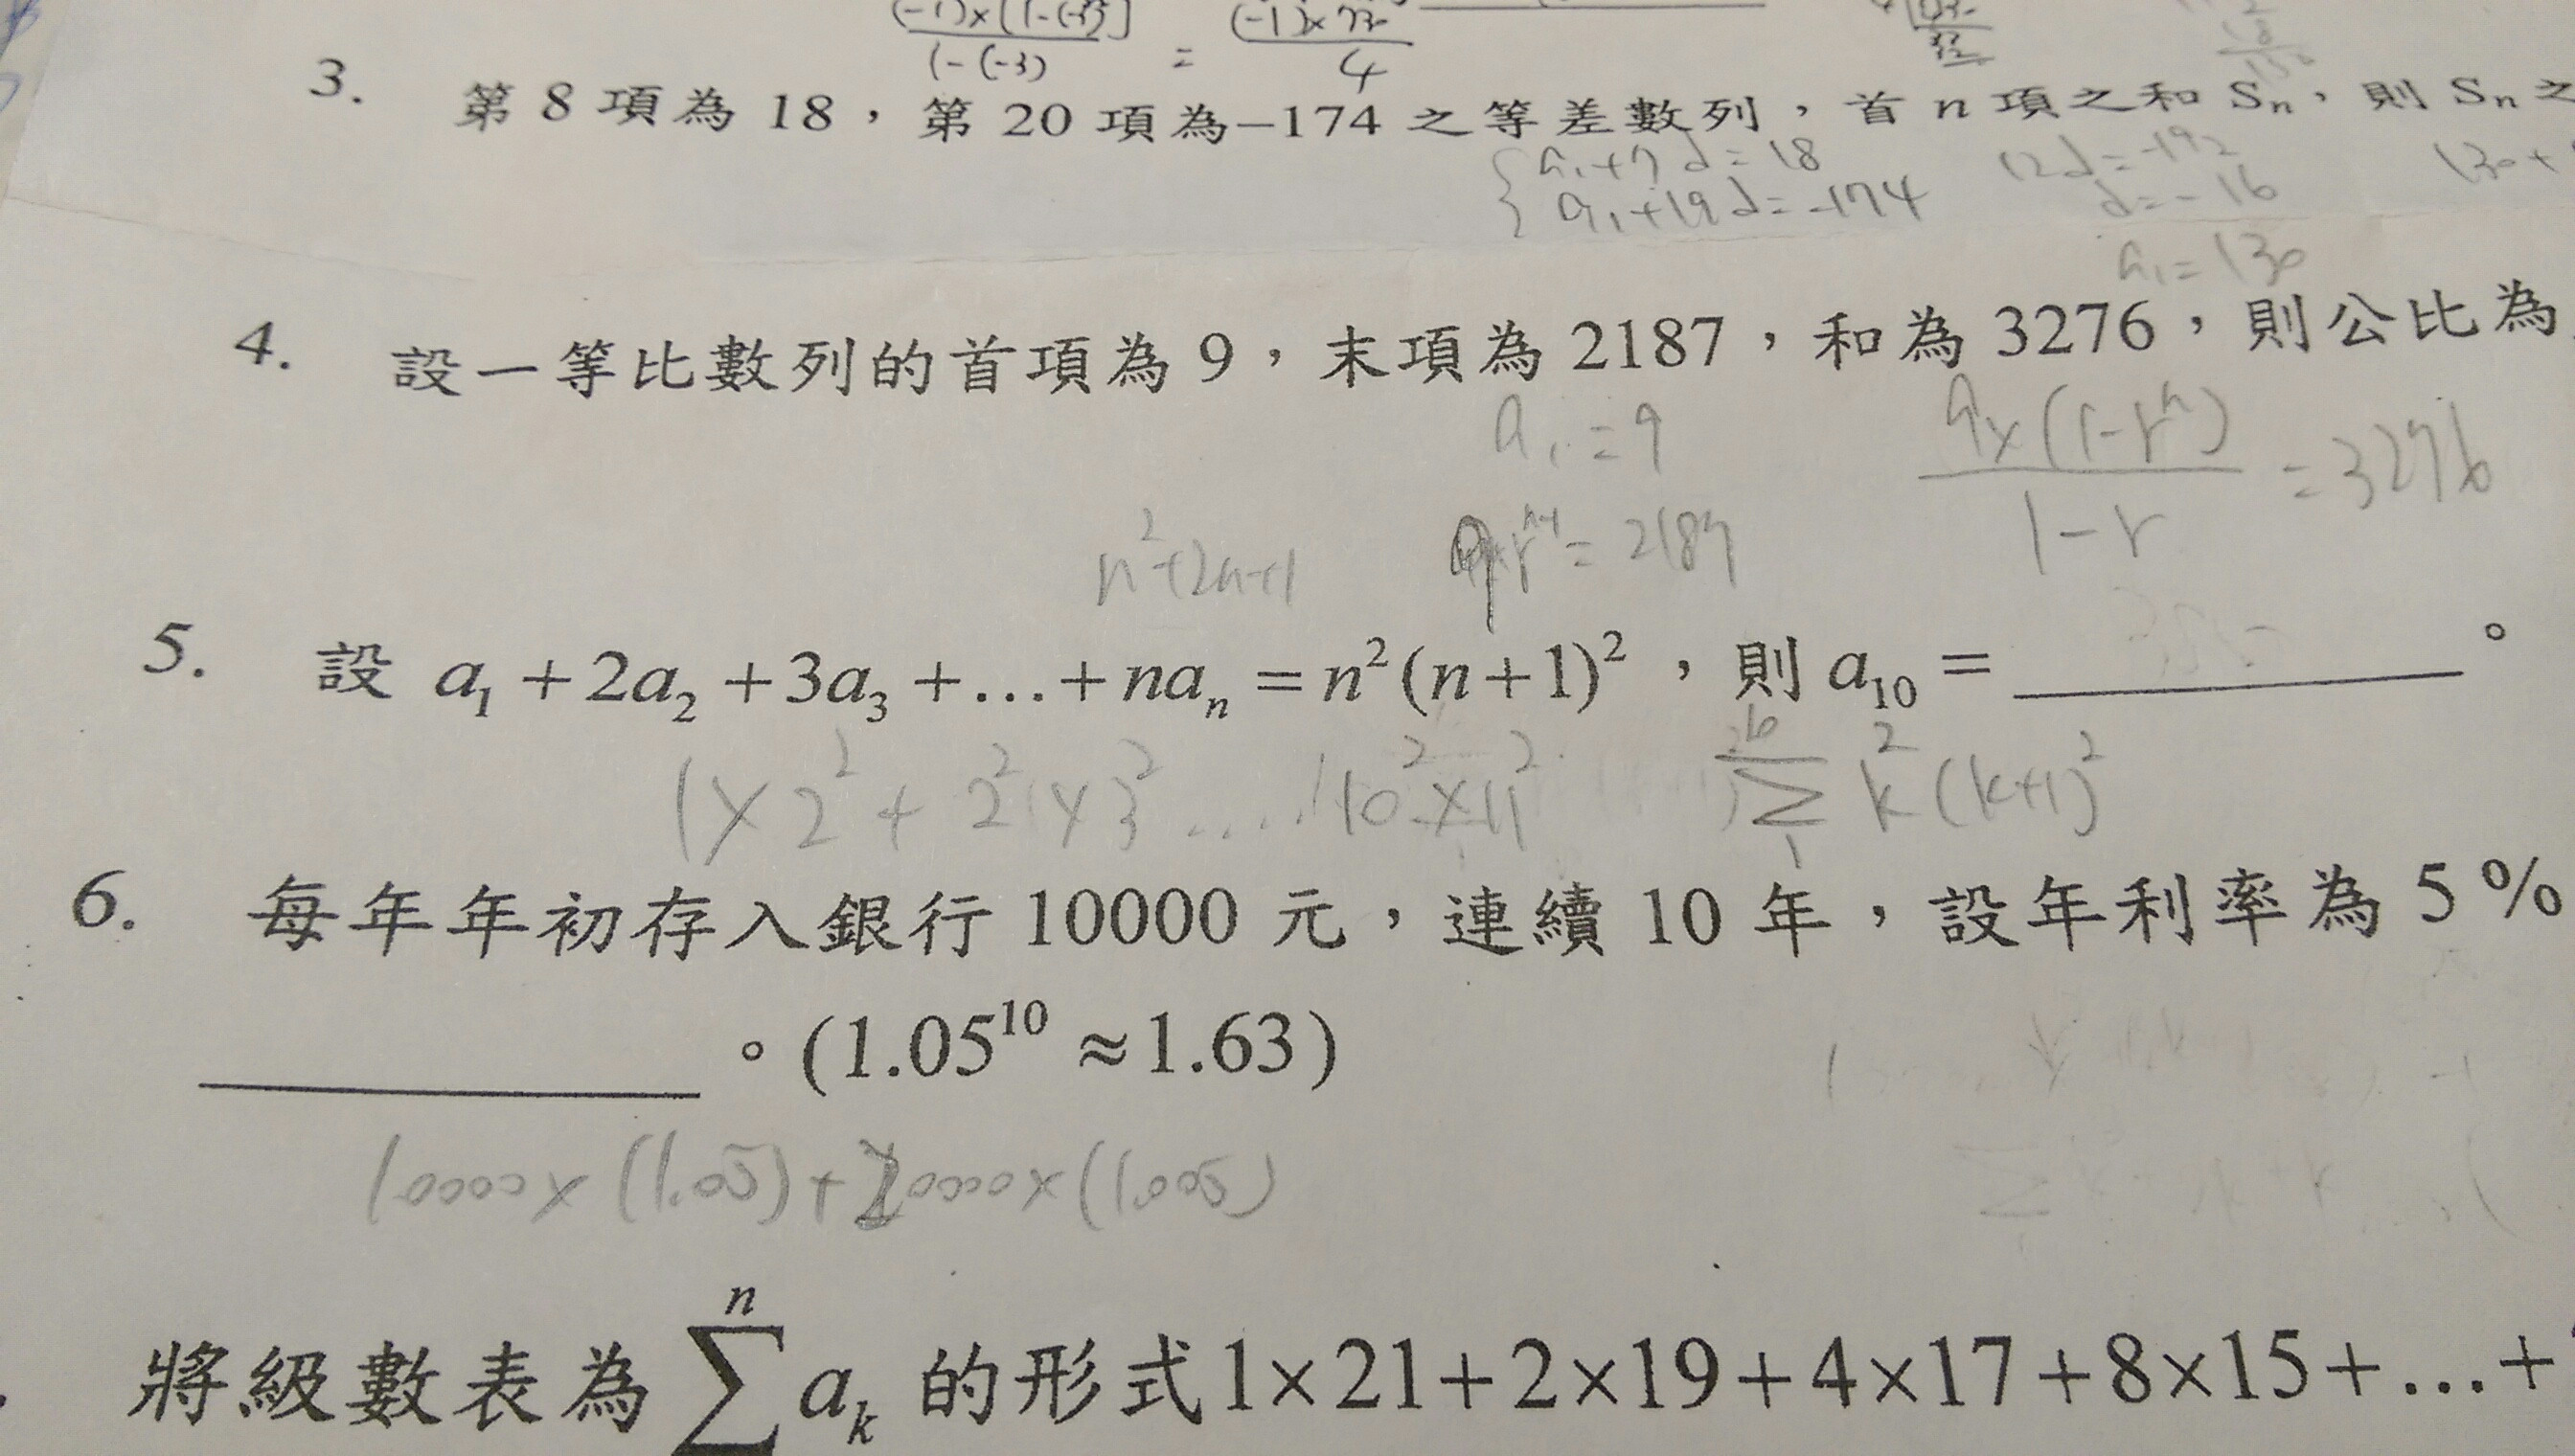 (-1)×[1-(-3)
1-(-3)
=
(-1)×730
4
3. 第 8 項為 18，第 20 項為−174 之等差數列，首 n 項之和 Sₙ，則 Sₙ 之
a₁+7d=18
12d=-192
130+
a₁+19d=-174
d=-16
a₁=130
4. 設一等比數列的首項為 9，末項為 2187，和為 3276，則公比為
a₁=9
9×(1-rⁿ)
1-r
=3276
n²+2n+1
9×rⁿ⁻¹=2187
5. 設 a₁+2a₂+3a₃+…+naₙ=n²(n+1)²，則 a₁₀=＿＿＿＿＿。
1×2²+2²×3²....10²×11²
Σ k²(k+1)²
1
6. 每年年初存入銀行 10000 元，連續 10 年，設年利率為 5%
＿＿＿＿＿。(1.05¹⁰≈1.63)
10000×(1.05)+10000×(1.005)
將級數表為 Σⁿ aₖ 的形式1×21+2×19+4×17+8×15+…+